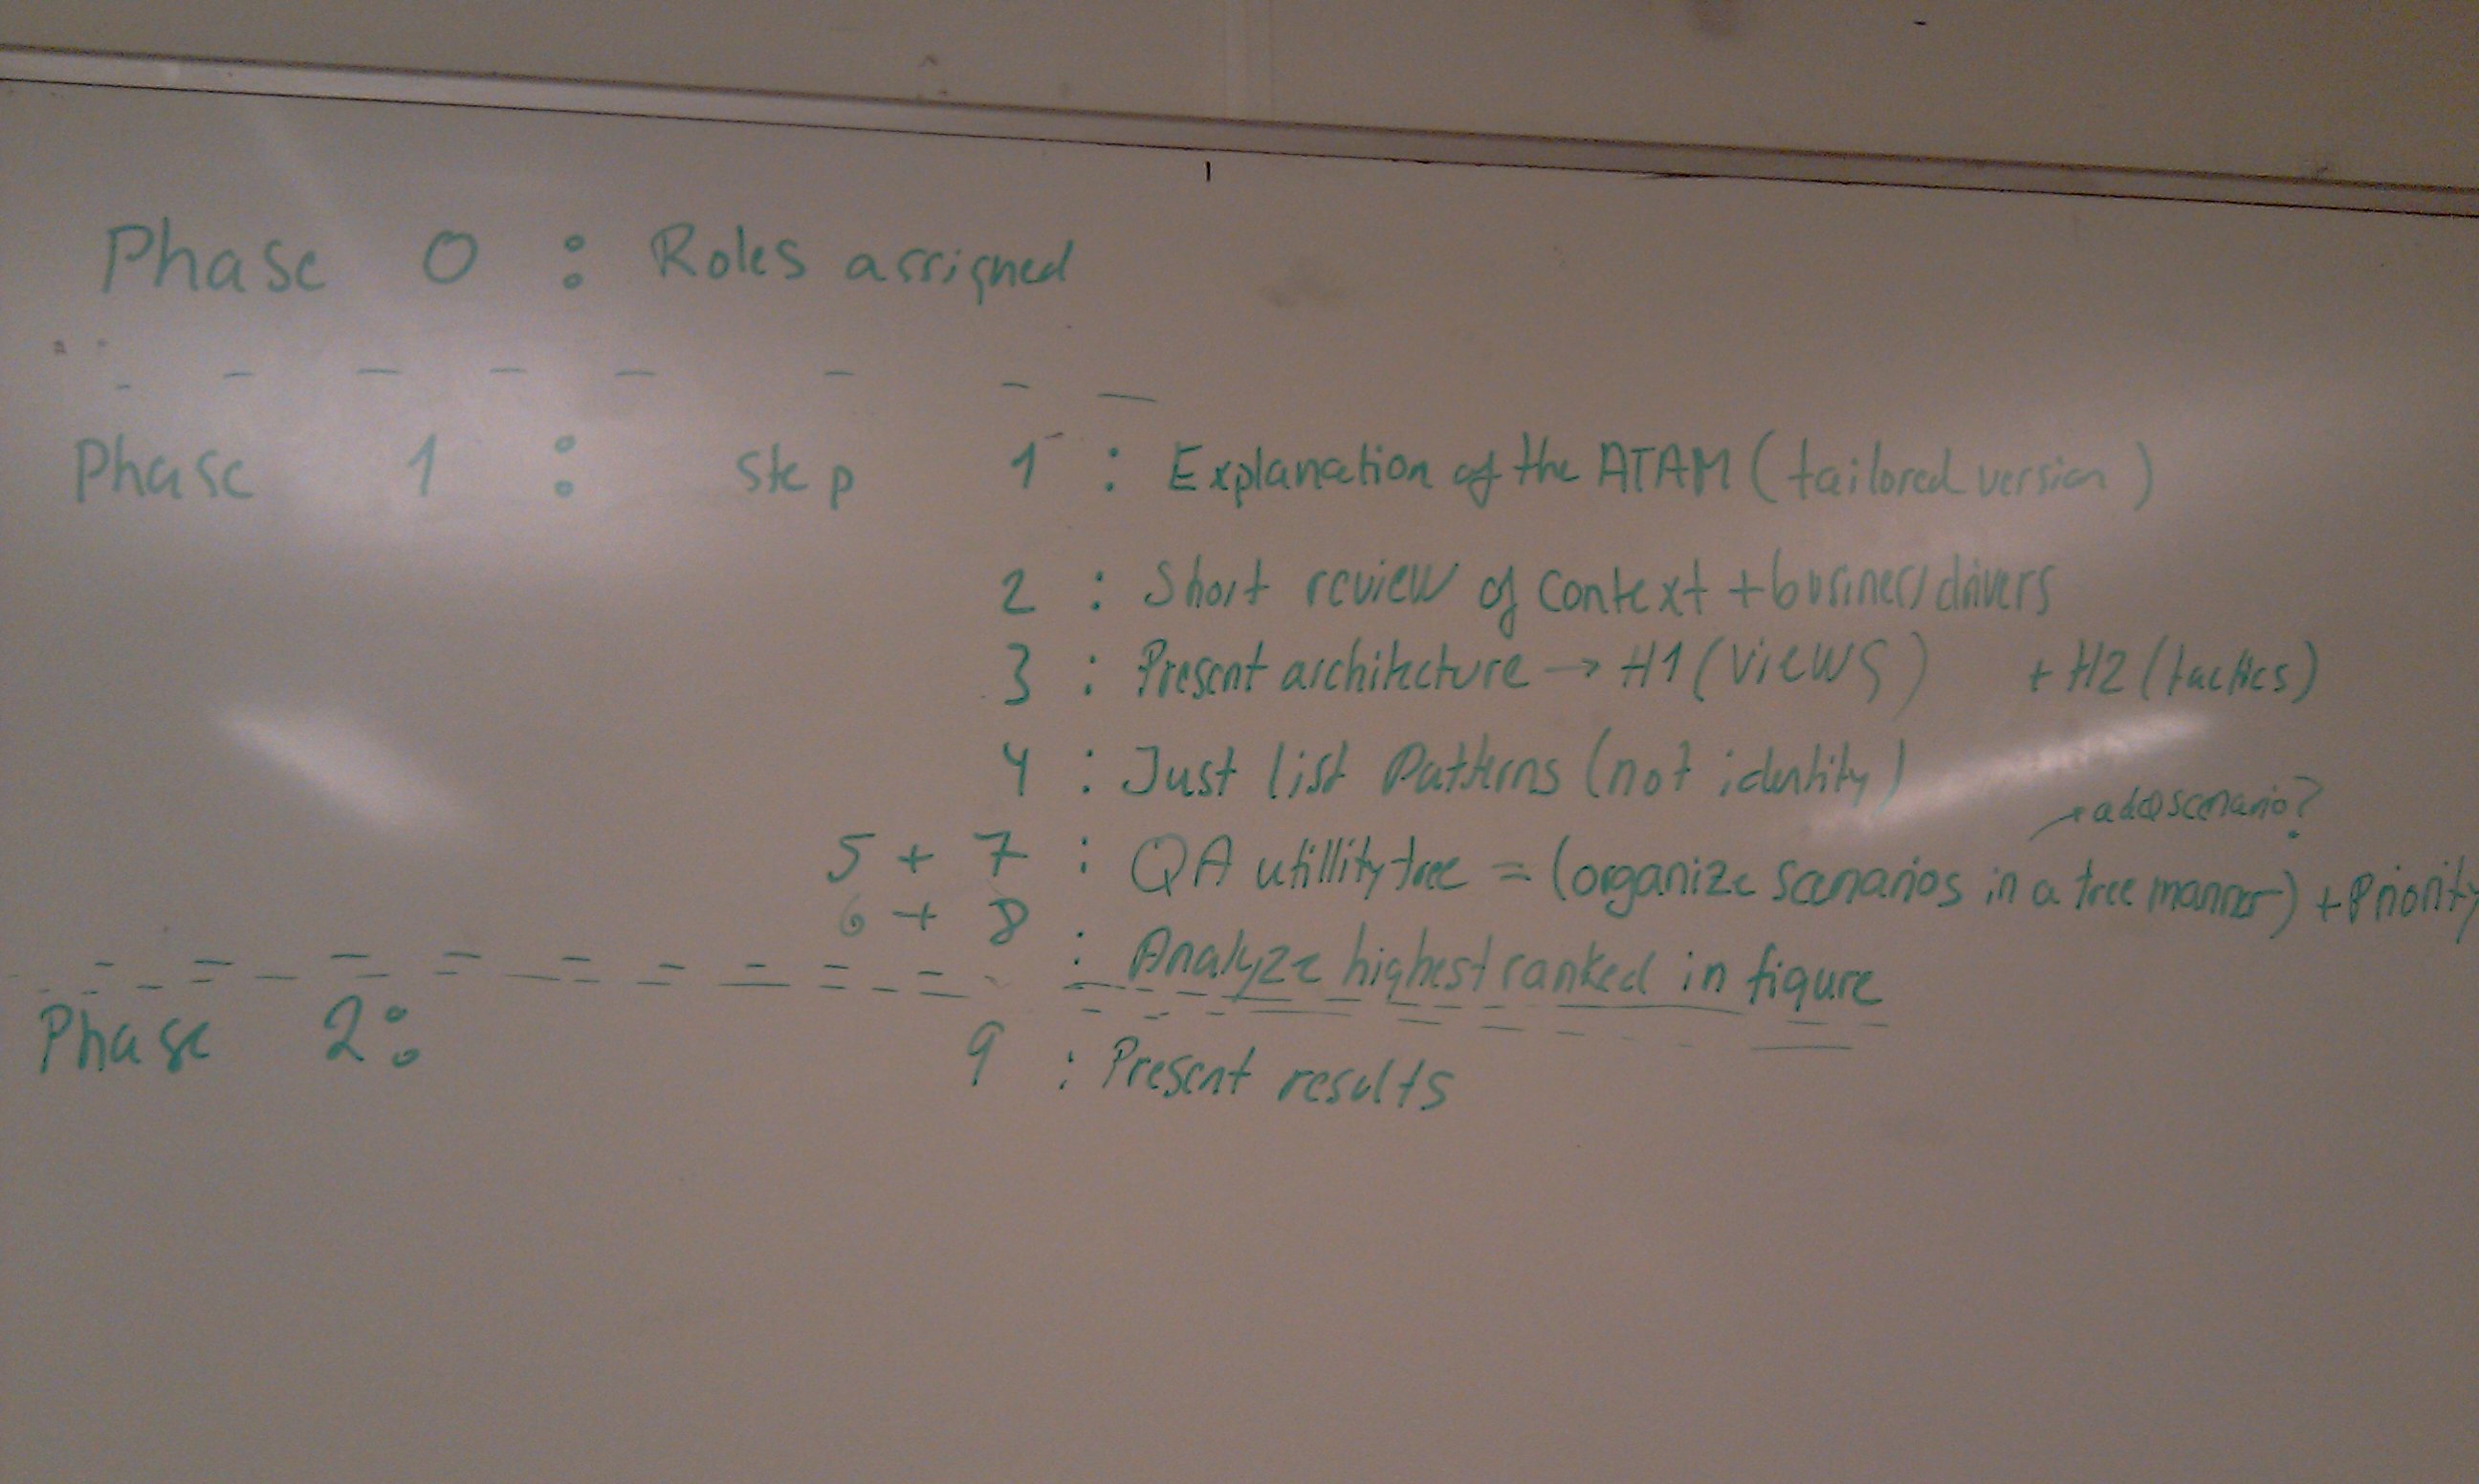 Phase 0 : Roles assigned
Phase 1 : step 1 : Explanation of the ATAM (tailored version)
2 : Short review of context + business drivers
3 : Present architecture → H1 (views) + H2 (tactics)
4 : Just list Patterns (not identity)
→ add scenario?
5 + 7 : QA utillity tree = (organize scenarios in a tree manner) + Priority
6 + 8 : Analyze highest ranked in figure
Phase 2: 9 : Present results